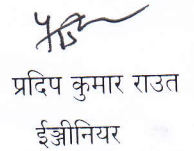 प्रदिप कुमार राउत
ईञ्जीनियर